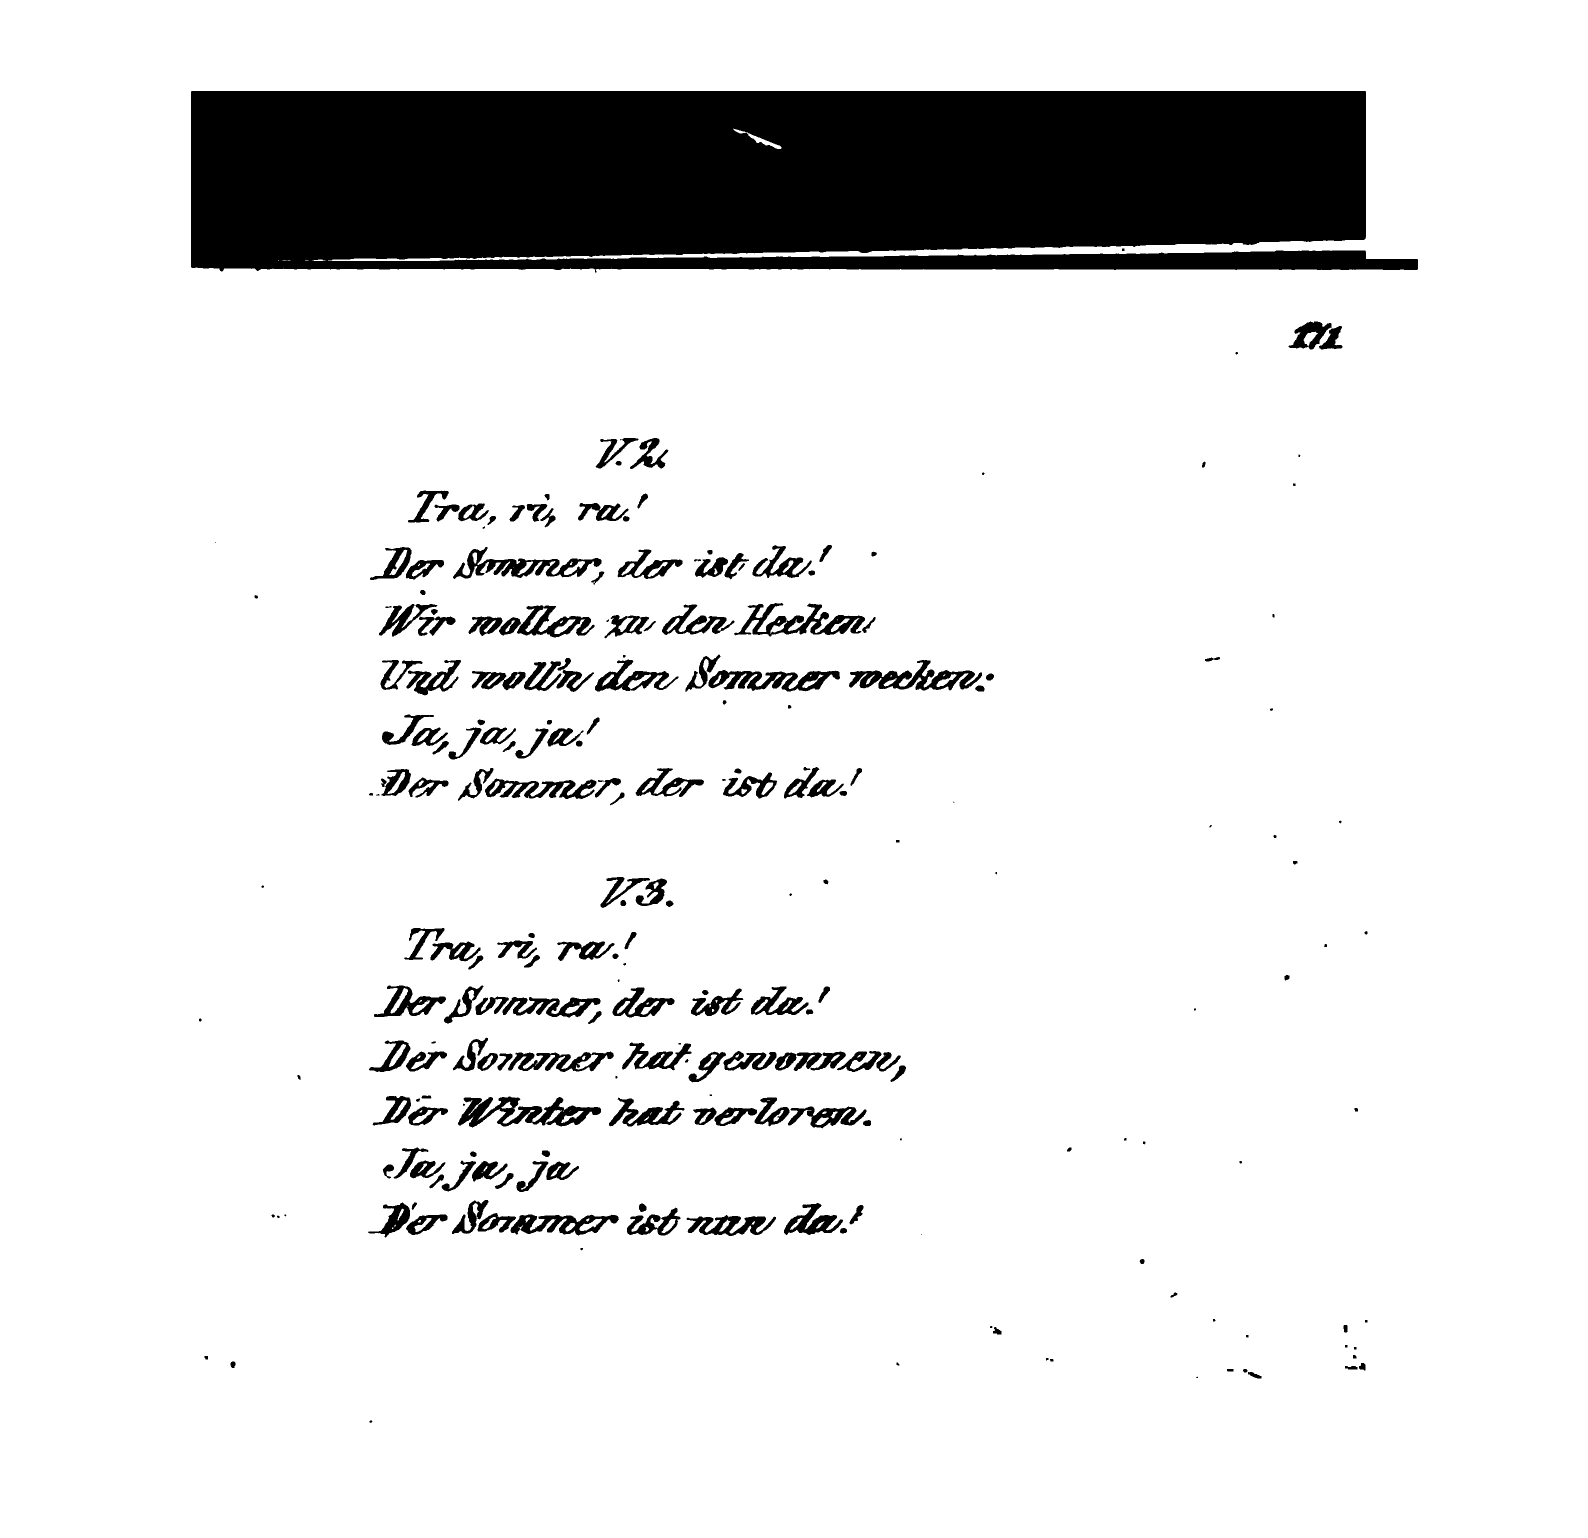 171
V. 2.
Tra, ri, ra!
Der Sommer, der ist da!
Wir wollen zu den Hecken
Und woll'n den Sommer wecken:
Ja, ja, ja!
Der Sommer, der ist da!
V. 3.
Tra, ri, ra!
Der Sommer, der ist da!
Der Sommer hat gewonnen,
Der Winter hat verloren.
Ja, ja, ja
Der Sommer ist nun da!